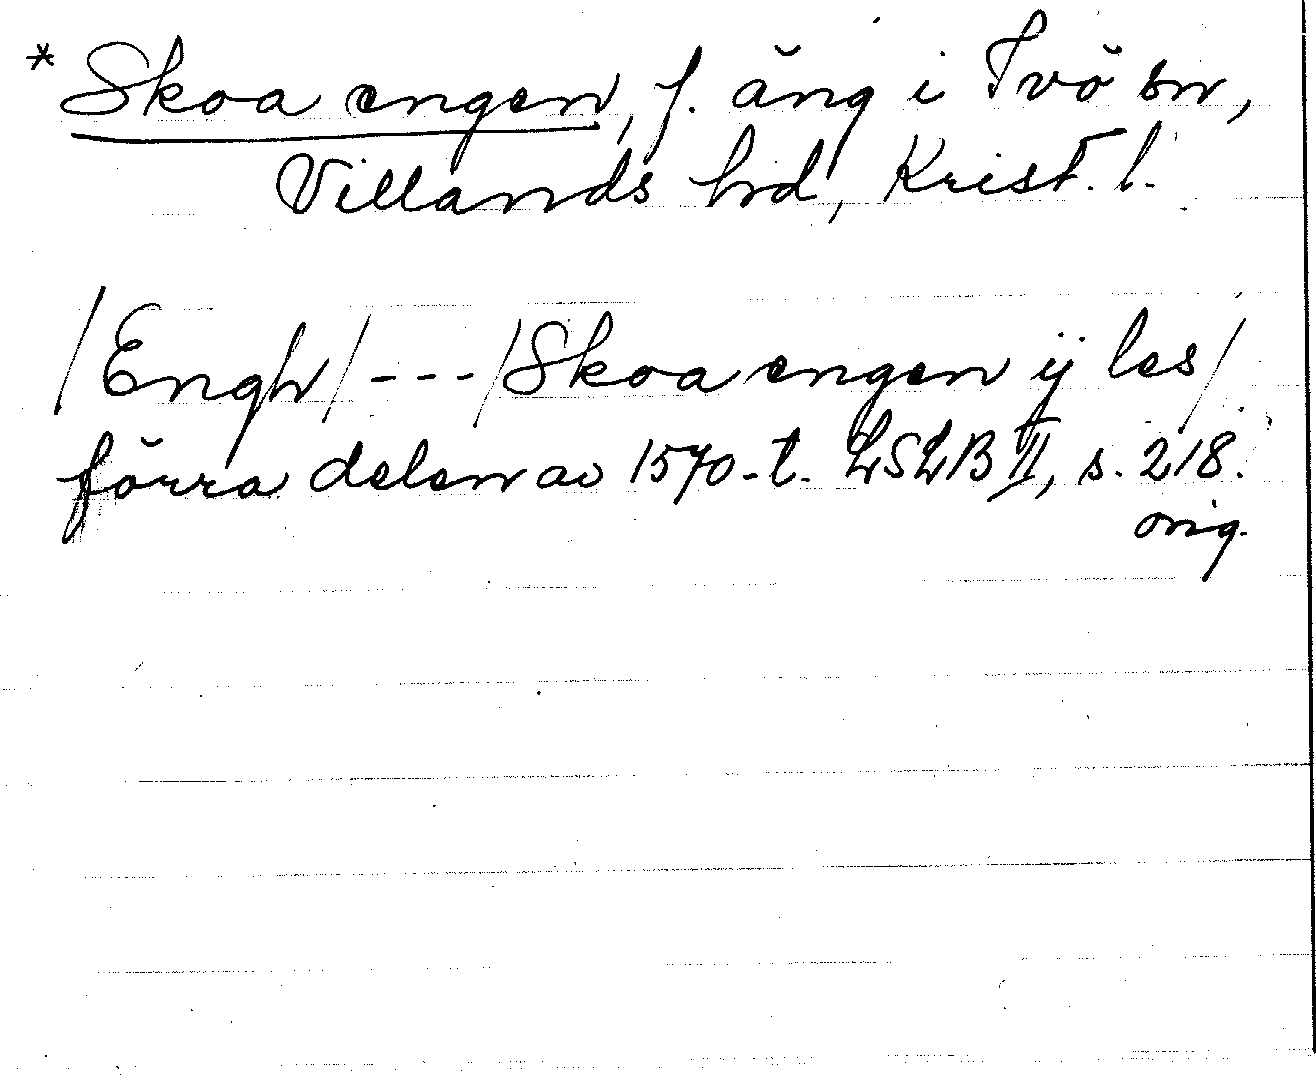 * Skoa engen, f. äng i Ivö sn,
Villands hrd, Krist. l.
/Engh/---/Skoa engen ij les/
förra delen av 1570-t. LSLB II, s. 218.
orig.